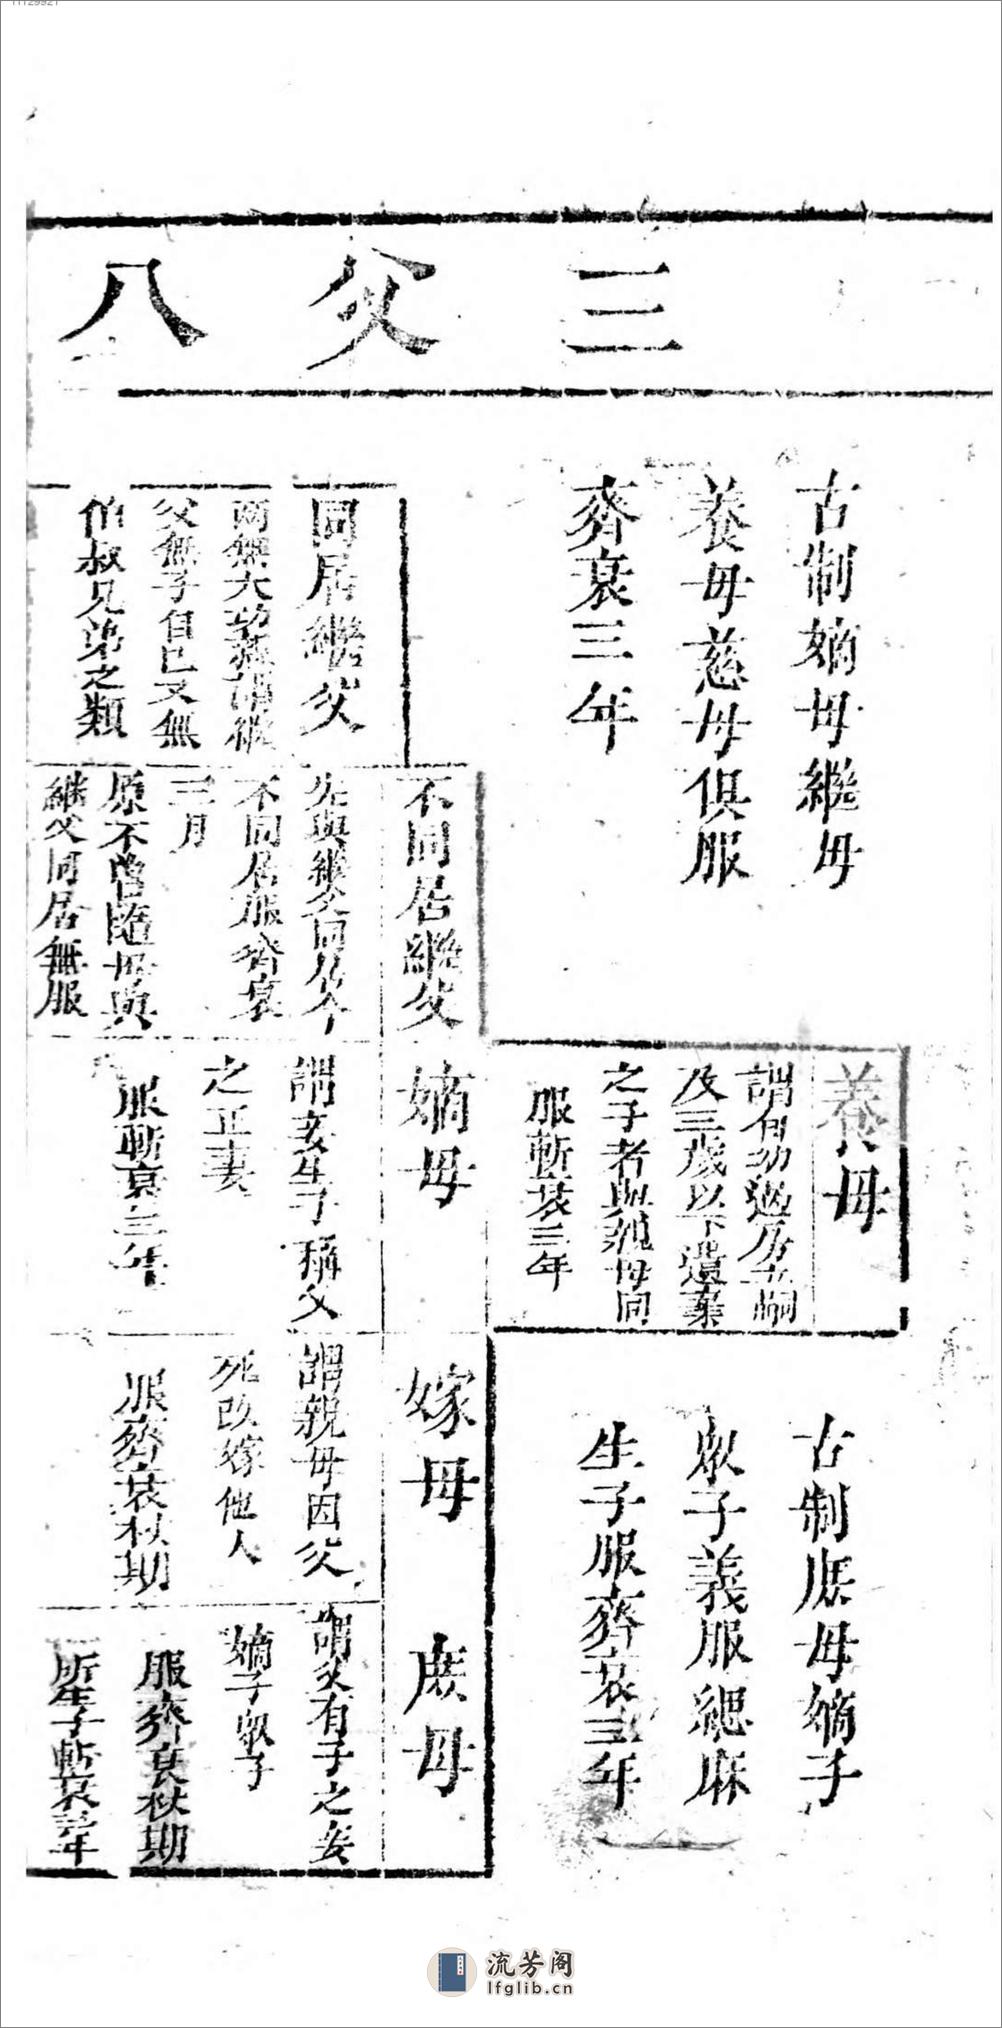 三父八
古制嫡母繼母
養母慈母俱服
齊衰三年
養母
謂自幼過房與嗣
及三歲以下遺棄
之子者與親母同
服斬衰三年
古制庶母嫡子
眾子義服緦麻
生子服齊衰三年
同居繼父
兩無大功親謂繼
父無子自己又無
伯叔兄弟之類
不同居繼父
先與繼父同居今
不同居服齊衰
三月
原不曾隨母與
繼父同居無服
嫡母
謂妾生子稱父
之正妻
服斬衰三年
嫁母
謂親母因父
死改嫁他人
服齊衰杖期
庶母
謂父有子之妾
嫡子眾子
服齊衰杖期
所生子斬衰三年
流芳阁
lfglib.cn